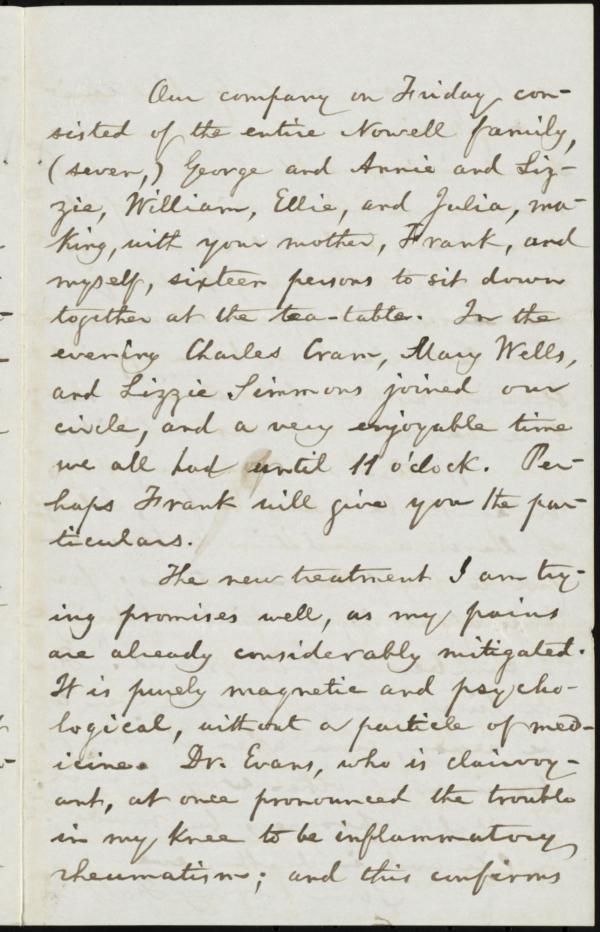 Our company on Friday con-
sisted of the entire Nowell family,
(seven,) George and Annie and Liz-
zie, William, Ellie, and Julia, ma-
king, with your mother, Frank, and
myself, sixteen persons to sit down
together at the tea-table. In the
evening Charles Cram, Mary Wells,
and Lizzie Simmons joined our
circle, and a very enjoyable time
we all had until 11 o'clock. Per-
haps Frank will give you the par-
ticulars.
The new treatment I am try-
ing promises well, as my pains
are already considerably mitigated.
It is purely magnetic and psycho-
logical, without a particle of med-
icine. Dr. Evans, who is clairvoy-
ant, at once pronounced the trouble
in my knee to be inflammatory
rheumatism; and this confirms